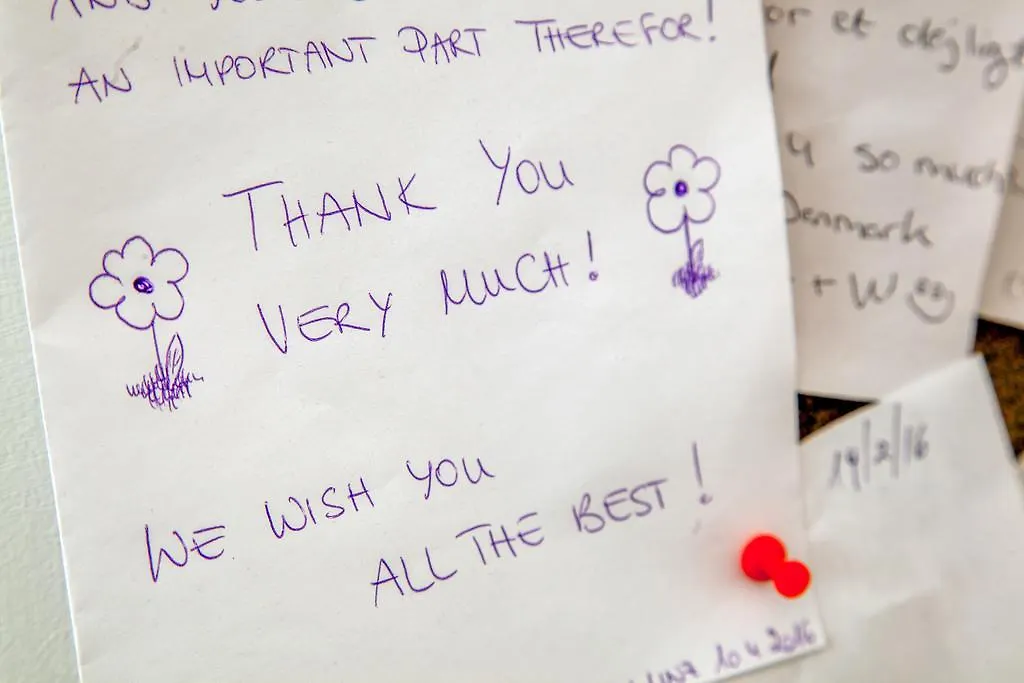 AN IMPORTANT PART THEREFOR!
THANK YOU
VERY MUCH!
WE WISH YOU
ALL THE BEST!
10 4 2016
or et dejlig
so much
Denmark
+ W
19/2/16